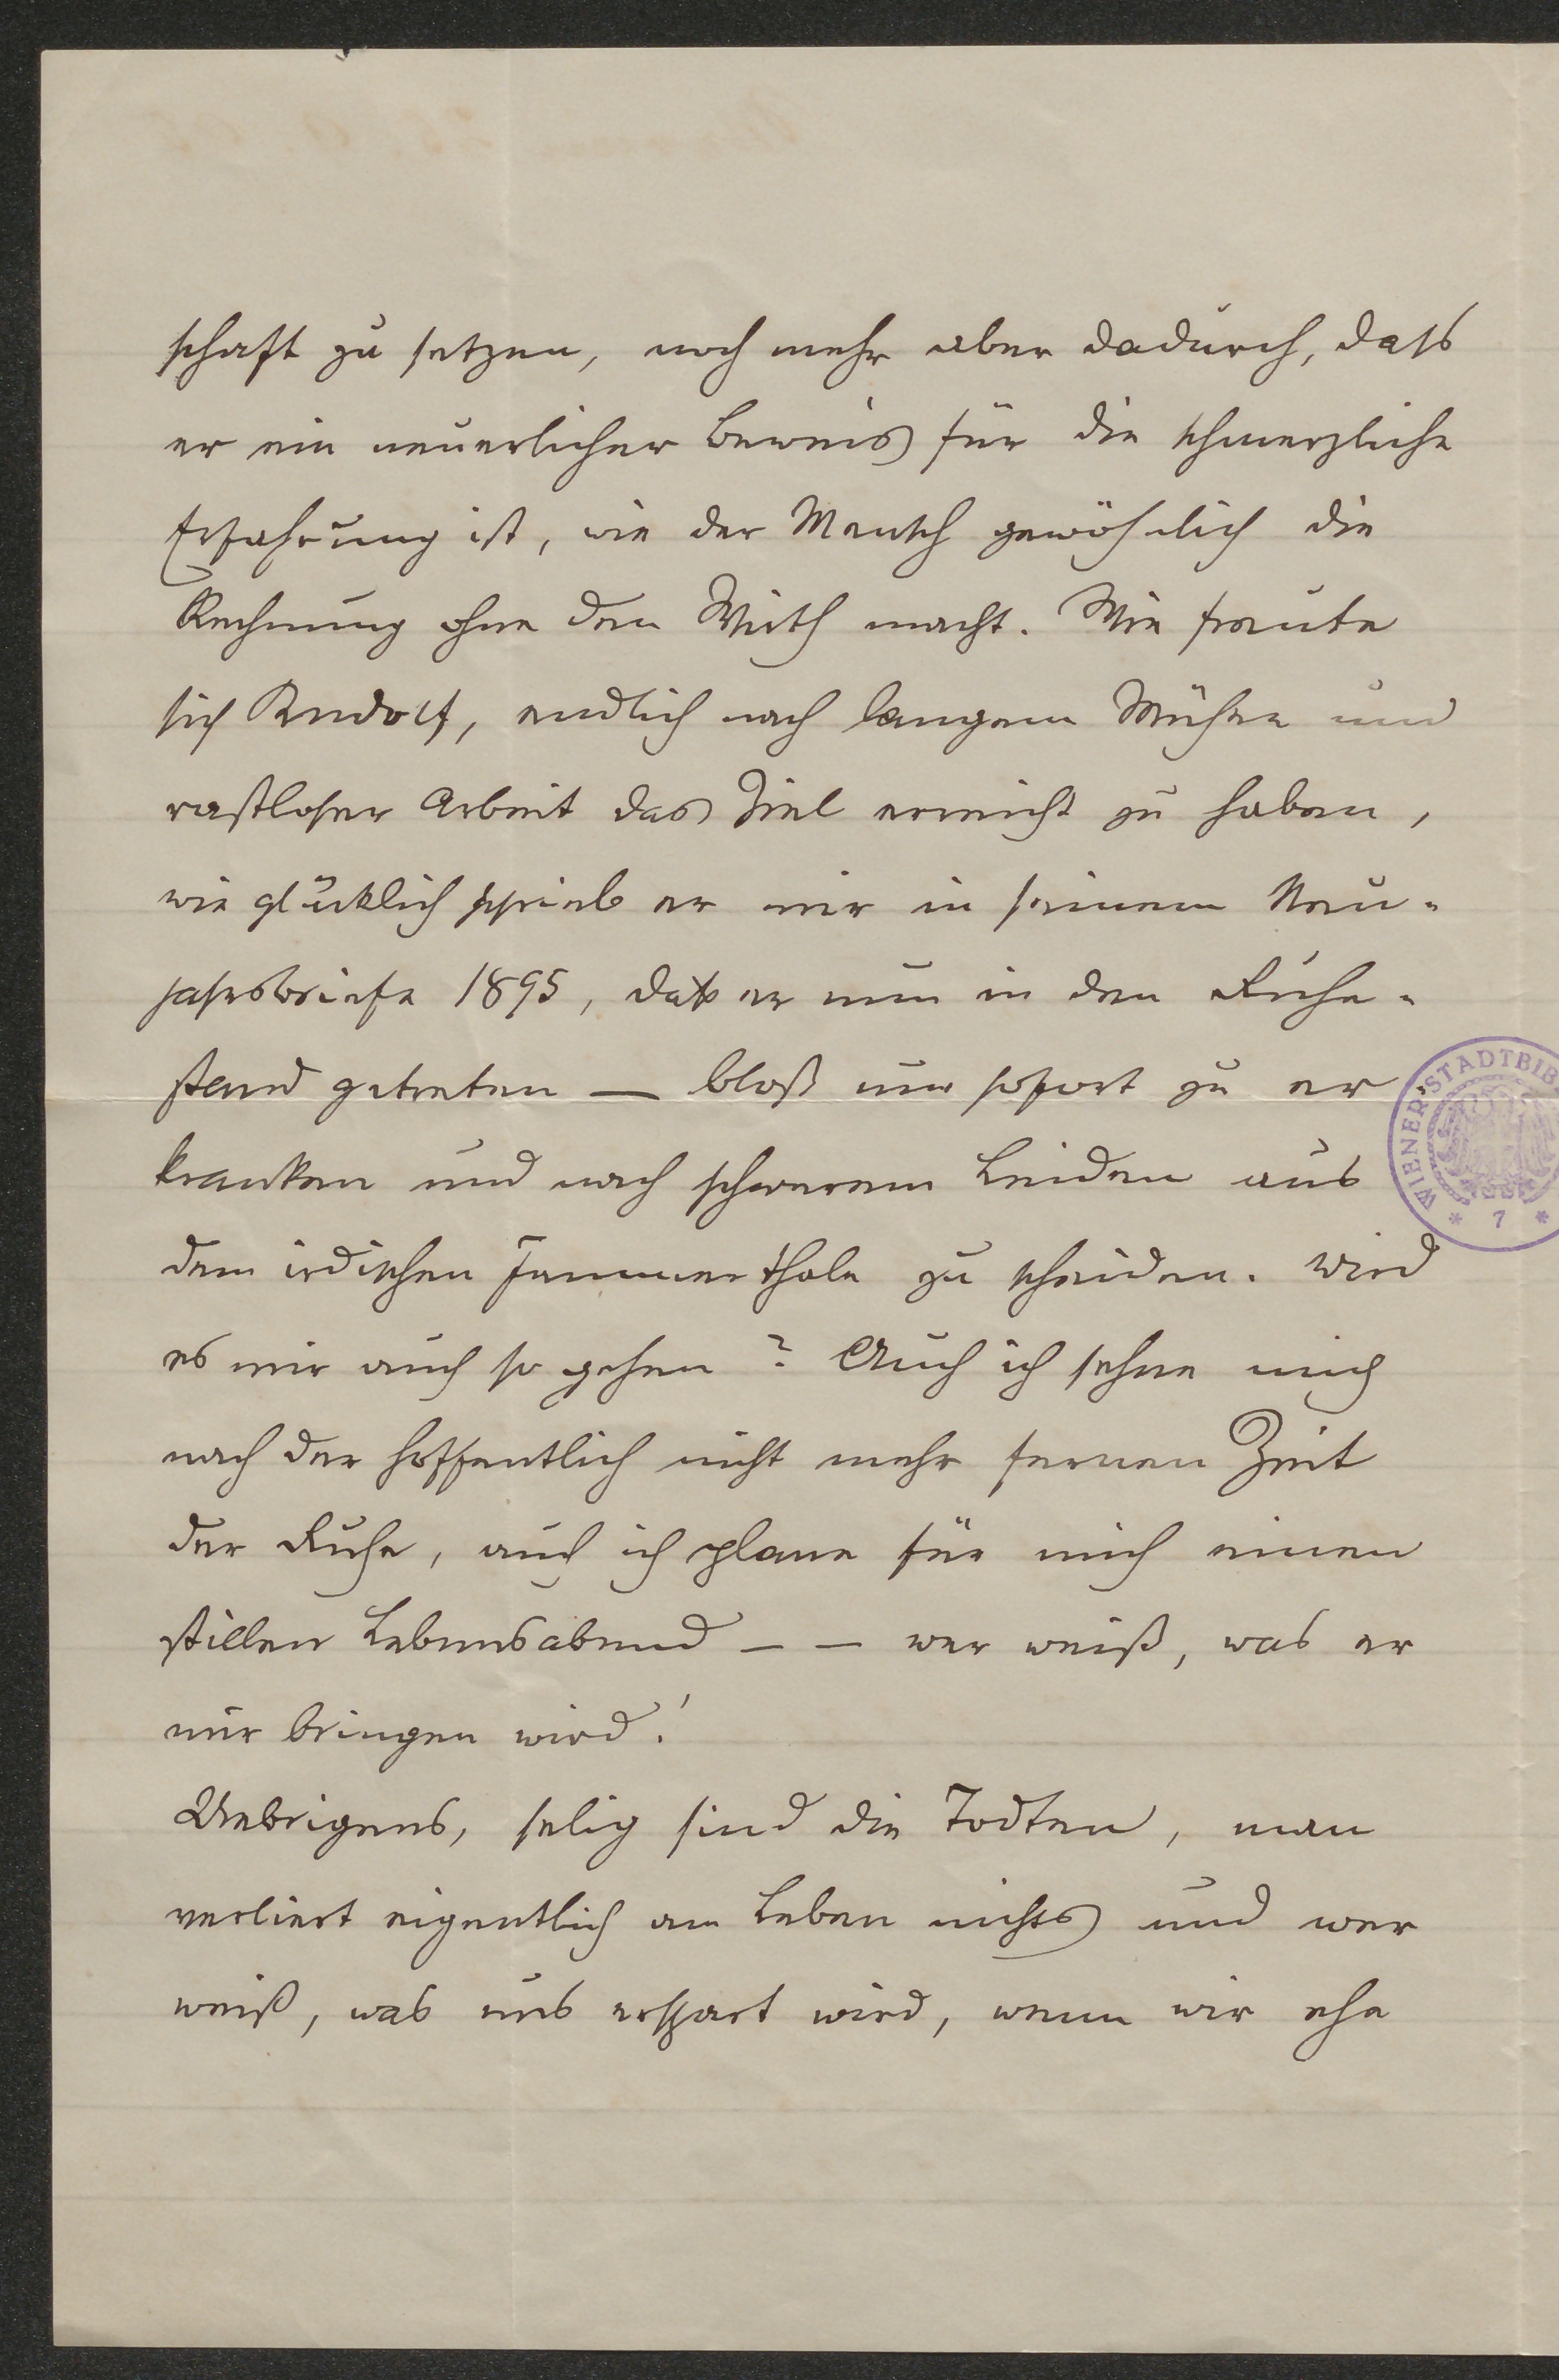 schaft zu setzen, noch mehr aber dadurch, dass
er ein neuerlicher Beweis für die schmerzliche
Erfahrung ist, wie der Mensch gewöhnlich die
Rechnung ohne den Wirth macht. Wie freute
sich Rudolf, endlich nach langem Mühen und
rastloser Arbeit das Ziel erreicht zu haben,
wie glücklich schrieb er mir in seinem Neu-
jahrsbriefe 1895, dass er nun in den Ruhe-
stand getreten — bloß um sofort zu er-
kranken und nach schwerem Leiden aus
dem irdischen Jammerthale zu scheiden. Wird
es mir auch so gehen? Auch ich sehne mich
nach der hoffentlich nicht mehr fernen Zeit
der Ruhe, auch ich plane für mich einen
stillen Lebensabend – – wer weiß, was er
mir bringen wird!
Uebrigens, selig sind die Todten, man
verliert eigentlich am Leben nichts und wer
weiß, was uns erspart wird, wenn wir ehe
WIENER STADTBIB
* 7 *